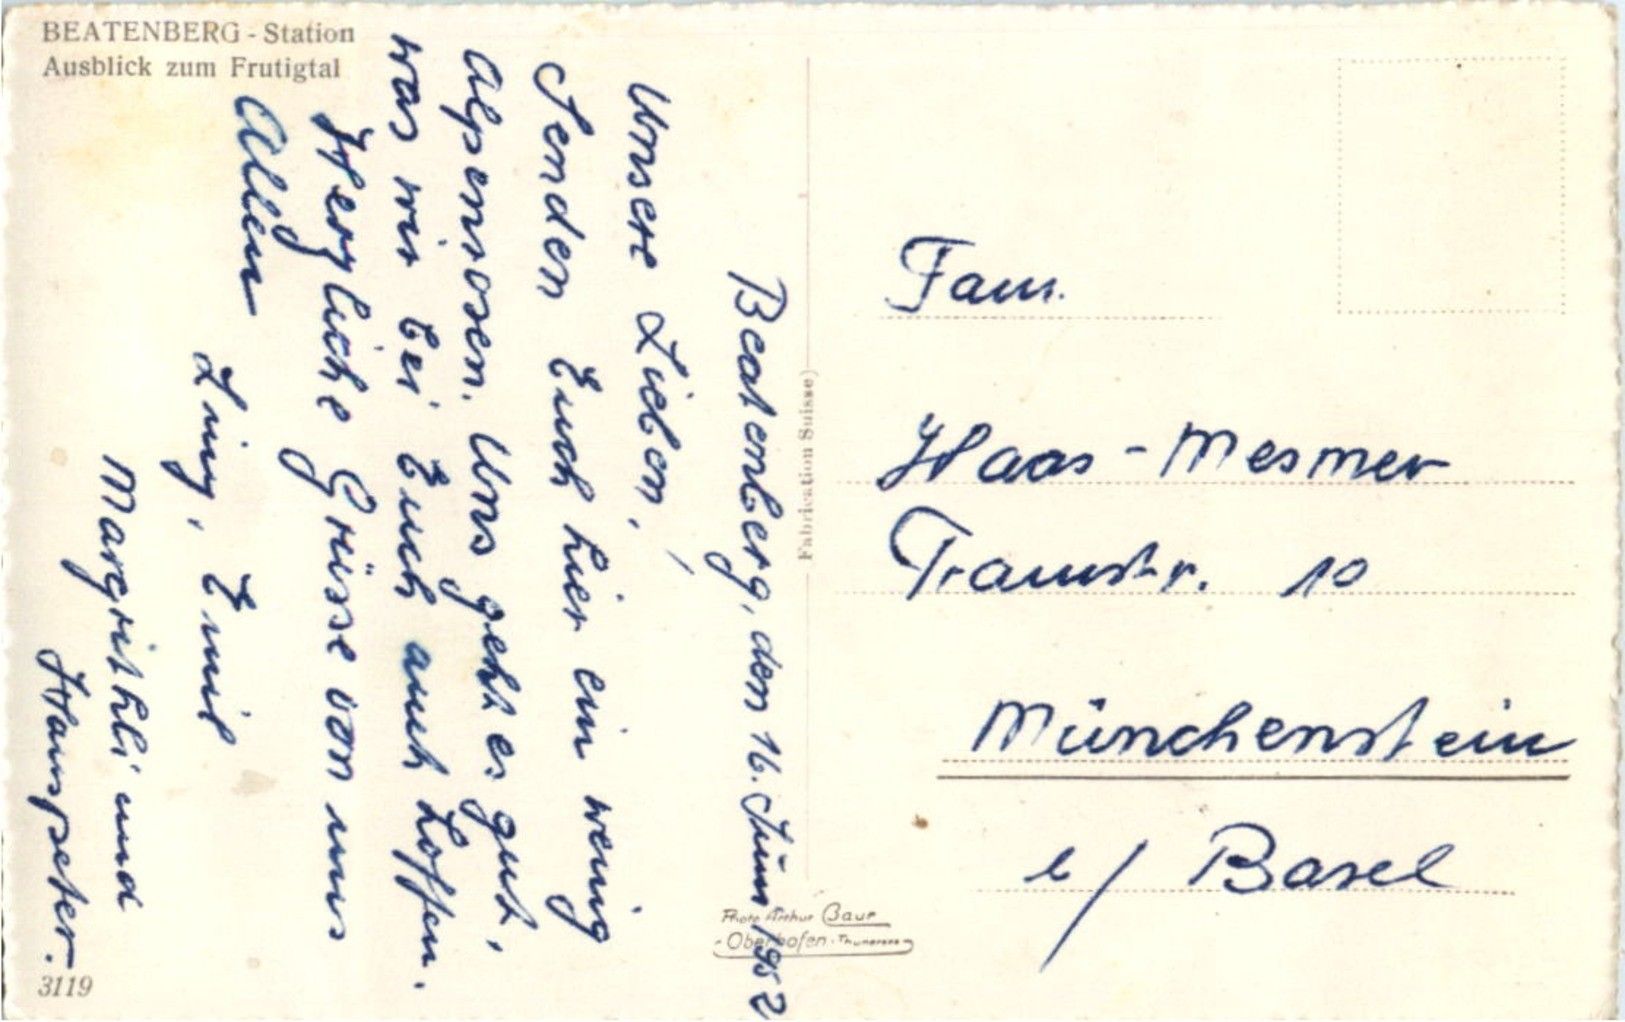 BEATENBERG - Station
Ausblick zum Frutigtal
Beatenberg, den 16. Juni 1952
Unsere Lieben,
Senden Euch hier ein wenig
Alpenrosen. Uns geht es gut,
was wir bei Euch auch hoffen.
Herzliche Grüsse von uns
Allen
Liny, Emil
Margrithli und
Hanspeter.
3119
Fabrication Suisse
Photo Arthur Baur
Oberhofen - Thunersee
Fam.
Haas - Mesmer
Tramstr. 10
Münchenstein
b/ Basel